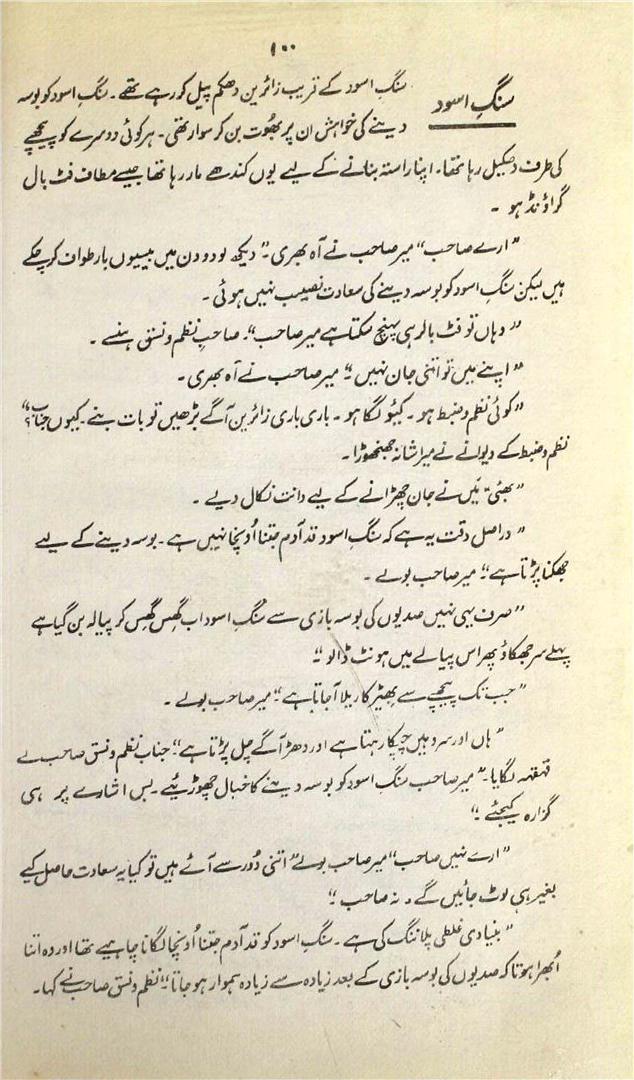 ۱۰۰
سنگِ اسود
سنگِ اسود کے قریب زائرین دھکم پیل کر رہے تھے۔ سنگِ اسود کو بوسہ
دینے کی خواہش ان پر بھُوت بن کر سوار تھی۔ ہر کوئی دوسرے کو پیچھے
کی طرف دھکیل رہا تھا۔ اپنا راستہ بنانے کے لیے یوں کندھے مار رہا تھا جیسے مطاف فٹ بال
گراؤنڈ ہو۔
”ارے صاحب“ میر صاحب نے آہ بھری۔ ”دیکھ لو دو دن میں بیسیوں بار طواف کر چکے
ہیں لیکن سنگِ اسود کو بوسہ دینے کی سعادت نصیب نہیں ہوئی۔
”وہاں تو فٹ بالر ہی پہنچ سکتا ہے میر صاحب“۔ صاحبِ نظم و نسق ہنسے۔
”اپنے میں تو اتنی جان نہیں“۔ میر صاحب نے آہ بھری۔
”کوئی نظم و ضبط ہو۔ کیُو لگا ہو۔ باری باری زائرین آگے بڑھیں تو بات بنے۔ کیوں جناب؟“
نظم و ضبط کے دیوانے نے میرا شانہ جھنجھوڑا۔
”بھئی“ مَیں نے جان چھڑانے کے لیے دانت نکال دیے۔
”دراصل دقت یہ ہے کہ سنگِ اسود قد آدم جتنا اُونچا نہیں ہے۔ بوسہ دینے کے لیے
جھکنا پڑتا ہے“۔ میر صاحب بولے۔
”صرف یہی نہیں صدیوں کی بوسہ بازی سے سنگِ اسود اب گھِس گھِس کر پیالہ بن گیا ہے
پہلے سر جھکاؤ پھر اس پیالے میں ہونٹ ڈالو“۔
”جب تک پیچھے سے بھِیڑ کا ریلا آ جاتا ہے“۔ میر صاحب بولے۔
”ہاں اور سر وہیں چپکا رہتا ہے اور دھڑ آگے چل پڑتا ہے“۔ جناب نظم و نسق صاحب نے
قہقہہ لگایا۔ ”میر صاحب سنگِ اسود کو بوسہ دینے کا خیال چھوڑیئے۔ بس اشارے پر ہی
گزارہ کیجئے“۔
”ارے نہیں صاحب“ میر صاحب بولے ”اتنی دُور سے آئے ہیں تو کیا یہ سعادت حاصل کیے
بغیر ہی لوٹ جائیں گے۔ نہ صاحب“۔
”بنیادی غلطی پلاننگ کی ہے۔ سنگِ اسود کو قد آدم جتنا اُونچا لگانا چاہیے تھا اور وہ اتنا
اُبھرا ہوتا کہ صدیوں کی بوسہ بازی کے بعد زیادہ سے زیادہ ہموار ہو جاتا“۔ نظم و نسق صاحب نے کہا۔